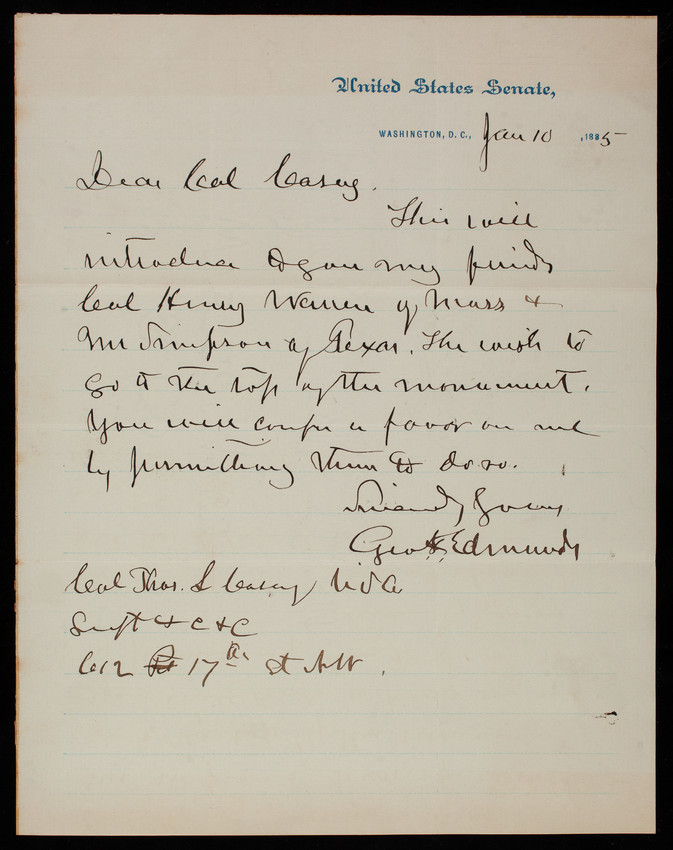 United States Senate,
WASHINGTON, D. C., Jan 10, 1885
Dear Col Casey.
This will
introduce to you my friends
Col Henry Warren of Mass &
Mr Simpson of Texas. The wish to
go to the top of the monument.
You will confer a favor on me
by permitting them to do so.
Sincerely yours
Geo F Edmunds
Col Thos. L Casey USA
Supt & C & C
612 17th St NW.